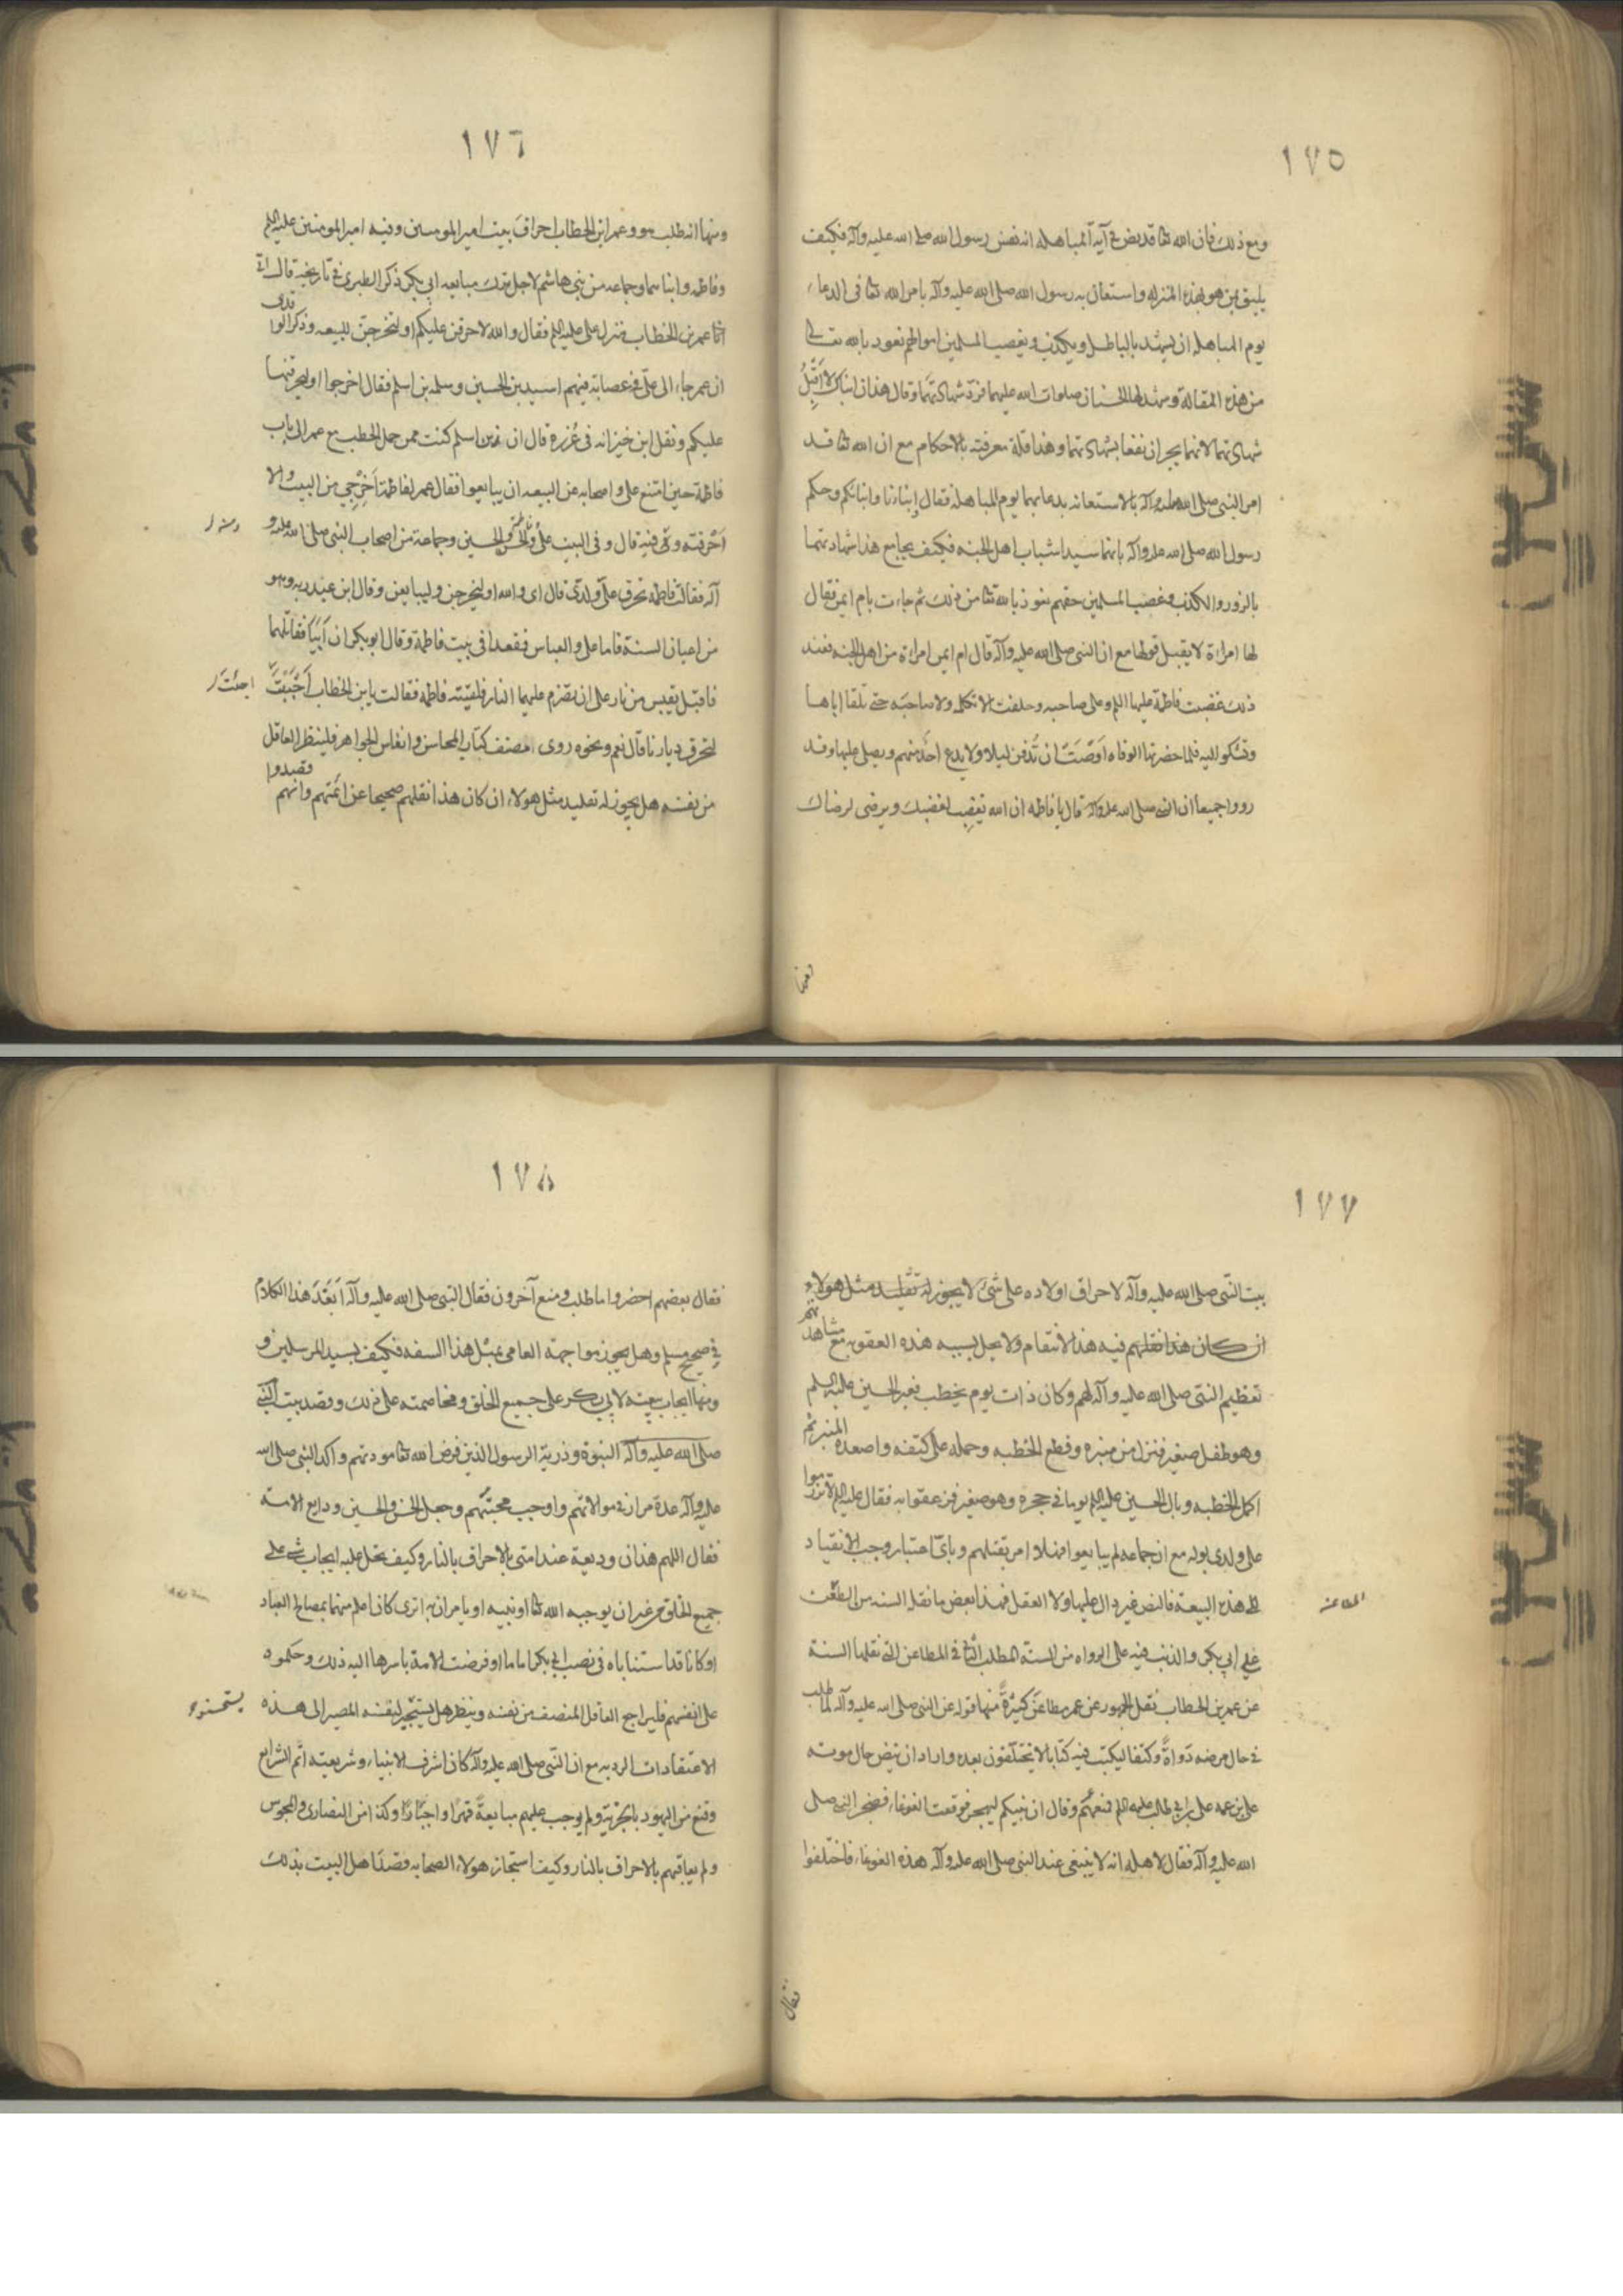 ١٧٥
ومع ذلك فان الله تعا قد نص في آية المباهلة انه نفس رسول الله صلى الله عليه وآله فكيف
يليق بمن هو بهذه المنزلة واستعان به رسول الله صلى الله عليه وآله بامر الله تعا في الدعاء
يوم المباهلة ان يشهد بالباطل ويكذب ويغصب المسلمين اموالهم نعوذ بالله
من هذه المقالة وشهد لها الحسنان صلوات الله عليهما فرد شهادتهما وقال هذان ابناك لا اقبل
شهادتهما لانهما يجران نفعا بشهادتهما وهذا قلة معرفته بالاحكام مع ان الله تعا قد
امر النبي صلى الله عليه وآله بالاستعانه بدعائهما يوم المباهلة فقال ابناءنا وابناءكم وحكم
رسول الله صلى الله عليه وآله بانهما سيدا شباب اهل الجنه فكيف يجامع هذا شهادتهما
بالزور والكذب وغصب المسلمين حقهم نعوذ بالله تعا من ذلك ثم جاءت بام ايمن فقال
لها امراة لا يقبل قولها مع ان النبي صلى الله عليه وآله قال ام ايمن امراة من اهل الجنه فعند
ذلك غضبت فاطمة عليها السلم وعلى صاحبه وحلفت لا تكلمه ولا صاحبه حتى تلقا اباها
وتشكو اليه فلما حضرتها الوفاه اوصت ان تدفن ليلا ولا يدع احد منهم ويصلى عليها وقد
رووا جميعا ان النبي صلى الله عليه وآله قال يا فاطمه ان الله يغضب لغضبك ويرضى لرضاك
ومنها
١٧٦
ومنها انه طلب هو وعمر ابن الخطاب احراق بيت امير المومنين وفيه امير المومنين عليه السلم
وفاطمه وابناهما وجماعه من بني هاشم لاجل ترك مبايعه ابي بكر ذكر الطبري في تاريخه قال اتى
اتا عمر بن الخطاب منزل علي عليه السلم فقال والله لاحرقن عليكم او لتخرجن للبيعه وذكر الواقدى
ان عمر جاء الى علي في عصابة فيهم اسيد بن الحسين وسلمه بن اسلم فقال اخرجوا او لنحرقنها
عليكم ونقل ابن خيزانه في غرره قال ان زيد بن اسلم كنت ممن حمل الحطب مع عمر الى باب
فاطمة حين امتنع علي واصحابه عن البيعه ان يبايعوا فقال عمر لفاطمة اخرجي من البيت والا
احرقته ومن فيه قال وفي البيت علي وفاطمة والحسن والحسين وجماعة من اصحاب النبي صلى الله عليه و
آله فقالت فاطمه تحرق علي ولدى قال اي والله او ليخرجن وليبايعن وقال ابن عبد ربه وهو
من اعيان السنة فاما علي والعباس فقعدا في بيت فاطمة وقال ابو بكر ان ابيا فقاتلهما
فاقبل بقبس من نار على ان يضرم عليهما النار فلقيته فاطمه فقالت يابن الخطاب اجئت
اجئت ر
لتحرق ديارنا قال نعم ونحوه روى مصنف كتاب المحاسن وانفاس الجواهر فلينظر العاقل
من نفسه هل يجوز له تقليد مثل هولاء ان كان هذا نقلهم صحيحا عن ائمتهم وانهم قصدوا
١٧٧
بيت النبي صلى الله عليه وآله لاحراق اولاده على شئ لا يجوز له تقليد مثل هولاء
ان كان هذا نقلهم فيه هذا الانتقام ولا يحل بسببه هذه العقوبه مع مشاهدتهم
تعظيم النبي صلى الله عليه وآله لهم وكان ذات يوم يخطب فعبر الحسين عليه السلم
وهو طفل صغير فنزل من منبره وقطع الخطبه وحمله على كتفه واصعده المنبر ثم
اكمل الخطبه وبال الحسين عليه السلم يوما في حجره وهو صغير فزعقوا به فقال عليه السلم لا تزرموا
على ولدى بوله مع ان جماعه لم يبايعوا فهلا امر بقتلهم وباي اعتبار وجب الانقياد
الى هذه البيعة فالنص غير دال عليها ولا العقل فهذا بعض ما نقله السنه من الطعن
المطاعن
على ابي بكر والذنب فيه على الرواه من السنة المطلب الثاني في المطاعن التي نقلها السنة
عن عمر بن الخطاب نقل الجمهور عن عمر مطاعن كثيرة منها قوله عن النبي صلى الله عليه وآله لما طلب
في حال مرضه دواة وكتفا ليكتب فيه كتابا لا يختلفون بعده واراد ان ينص حال موته
على بن عمه علي بن ابي طالب عليه السلم فمنعهم وقال ان نبيكم ليهجر فوقعت الغوغاء فضجر النبي صلى
الله عليه وآله فقال لاهله انه لا ينبغي عند النبي صلى الله عليه وآله هذه الغوغاء فاختلفوا
فقال
١٧٨
فقال بعضهم احضروا ما طلب ومنع آخرون فقال النبي صلى الله عليه وآله ابعد هذا الكلام
في صحيح مسلم وهل يجوز مواجهة العامي بمثل هذا السفه فكيف بسيد المرسلين و
ومنها ايجاب بيعته لابي بكر على جميع الخلق ومخاصمته على ذلك وقصد بيت النبي
صلى الله عليه وآله النبوة وذرية الرسول الذين فرض الله تعا مودتهم واكد النبي صلى الله
عليه وآله عدة مرار في موالاتهم واوجب محبتهم وجعل الحسن والحسين ودايع الامة
فقال اللهم هذان وديعة عند امتي بالاحراق بالنار وكيف يحل عليه ايجاب شيء على
جميع الخلق من غير ان يوجبه الله تعا او نبيه او يامران به اترى كانا اعلم منهما بمصالح العباد
او كانا قد استناباه في نصب ابي بكر اماما او فوضت الامة باسرها اليه ذلك وحكموه
على انفسهم فليراجع العاقل المنصف من نفسه وينظر هل يستجيز لنفسه المصير الى هذه
الاعتقادات الرديه مع ان النبي صلى الله عليه وآله كان اشرف الانبياء وشريعته اتم الشرايع
وقنع من اليهود بالجزية ولم يوجب عليهم مبايعة قهرا واجبارا وكذا من النصارى والمجوس
ولم يعاقبهم بالاحراق بالنار وكيف استجاز هولاء الصحابه قصد اهل البيت بذلك